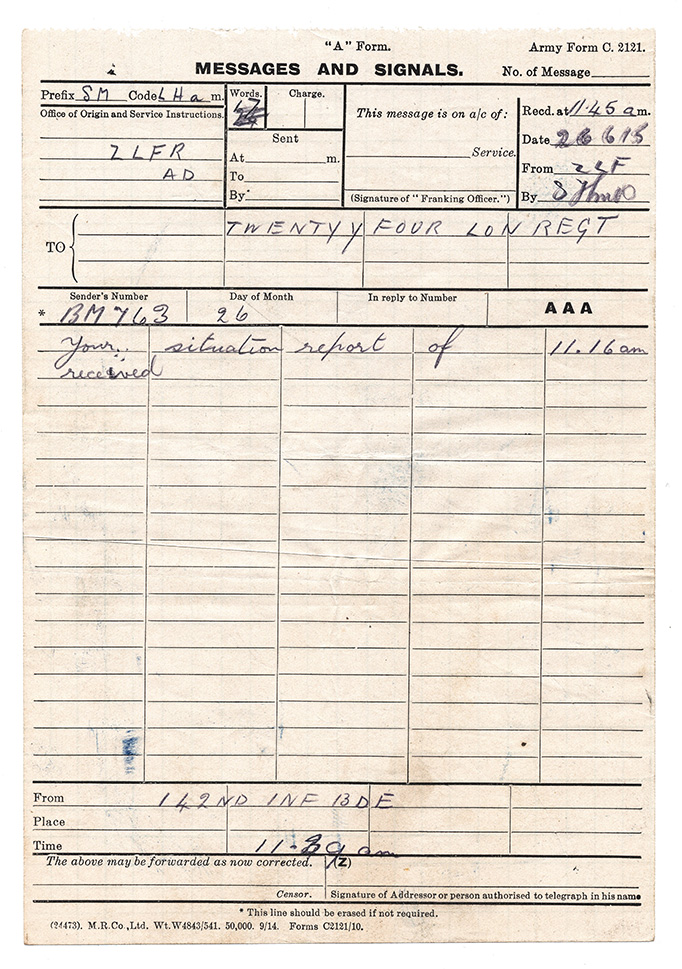 "A" Form. Army Form C. 2121.
MESSAGES AND SIGNALS. No. of Message
Prefix SM Code LHa m. Words. Charge. This message is on a/c of: Recd. at 11.45 am.
Office of Origin and Service Instructions.
ZLFR
AD
Sent
At m.
To
By
Service.
(Signature of "Franking Officer.")
Date 26 6 15
From ZLF
By
TO TWENTYY FOUR LON REGT
Sender's Number Day of Month In reply to Number AAA
* BM763 26
Your situation report of 11.16 am
received
From 142ND INF BDE
Place
Time 11.39 am
The above may be forwarded as now corrected. (Z)
Censor. Signature of Addressor or person authorised to telegraph in his name
* This line should be erased if not required.
(24473). M.R.Co.,Ltd. Wt.W4843/541. 50,000. 9/14. Forms C2121/10.